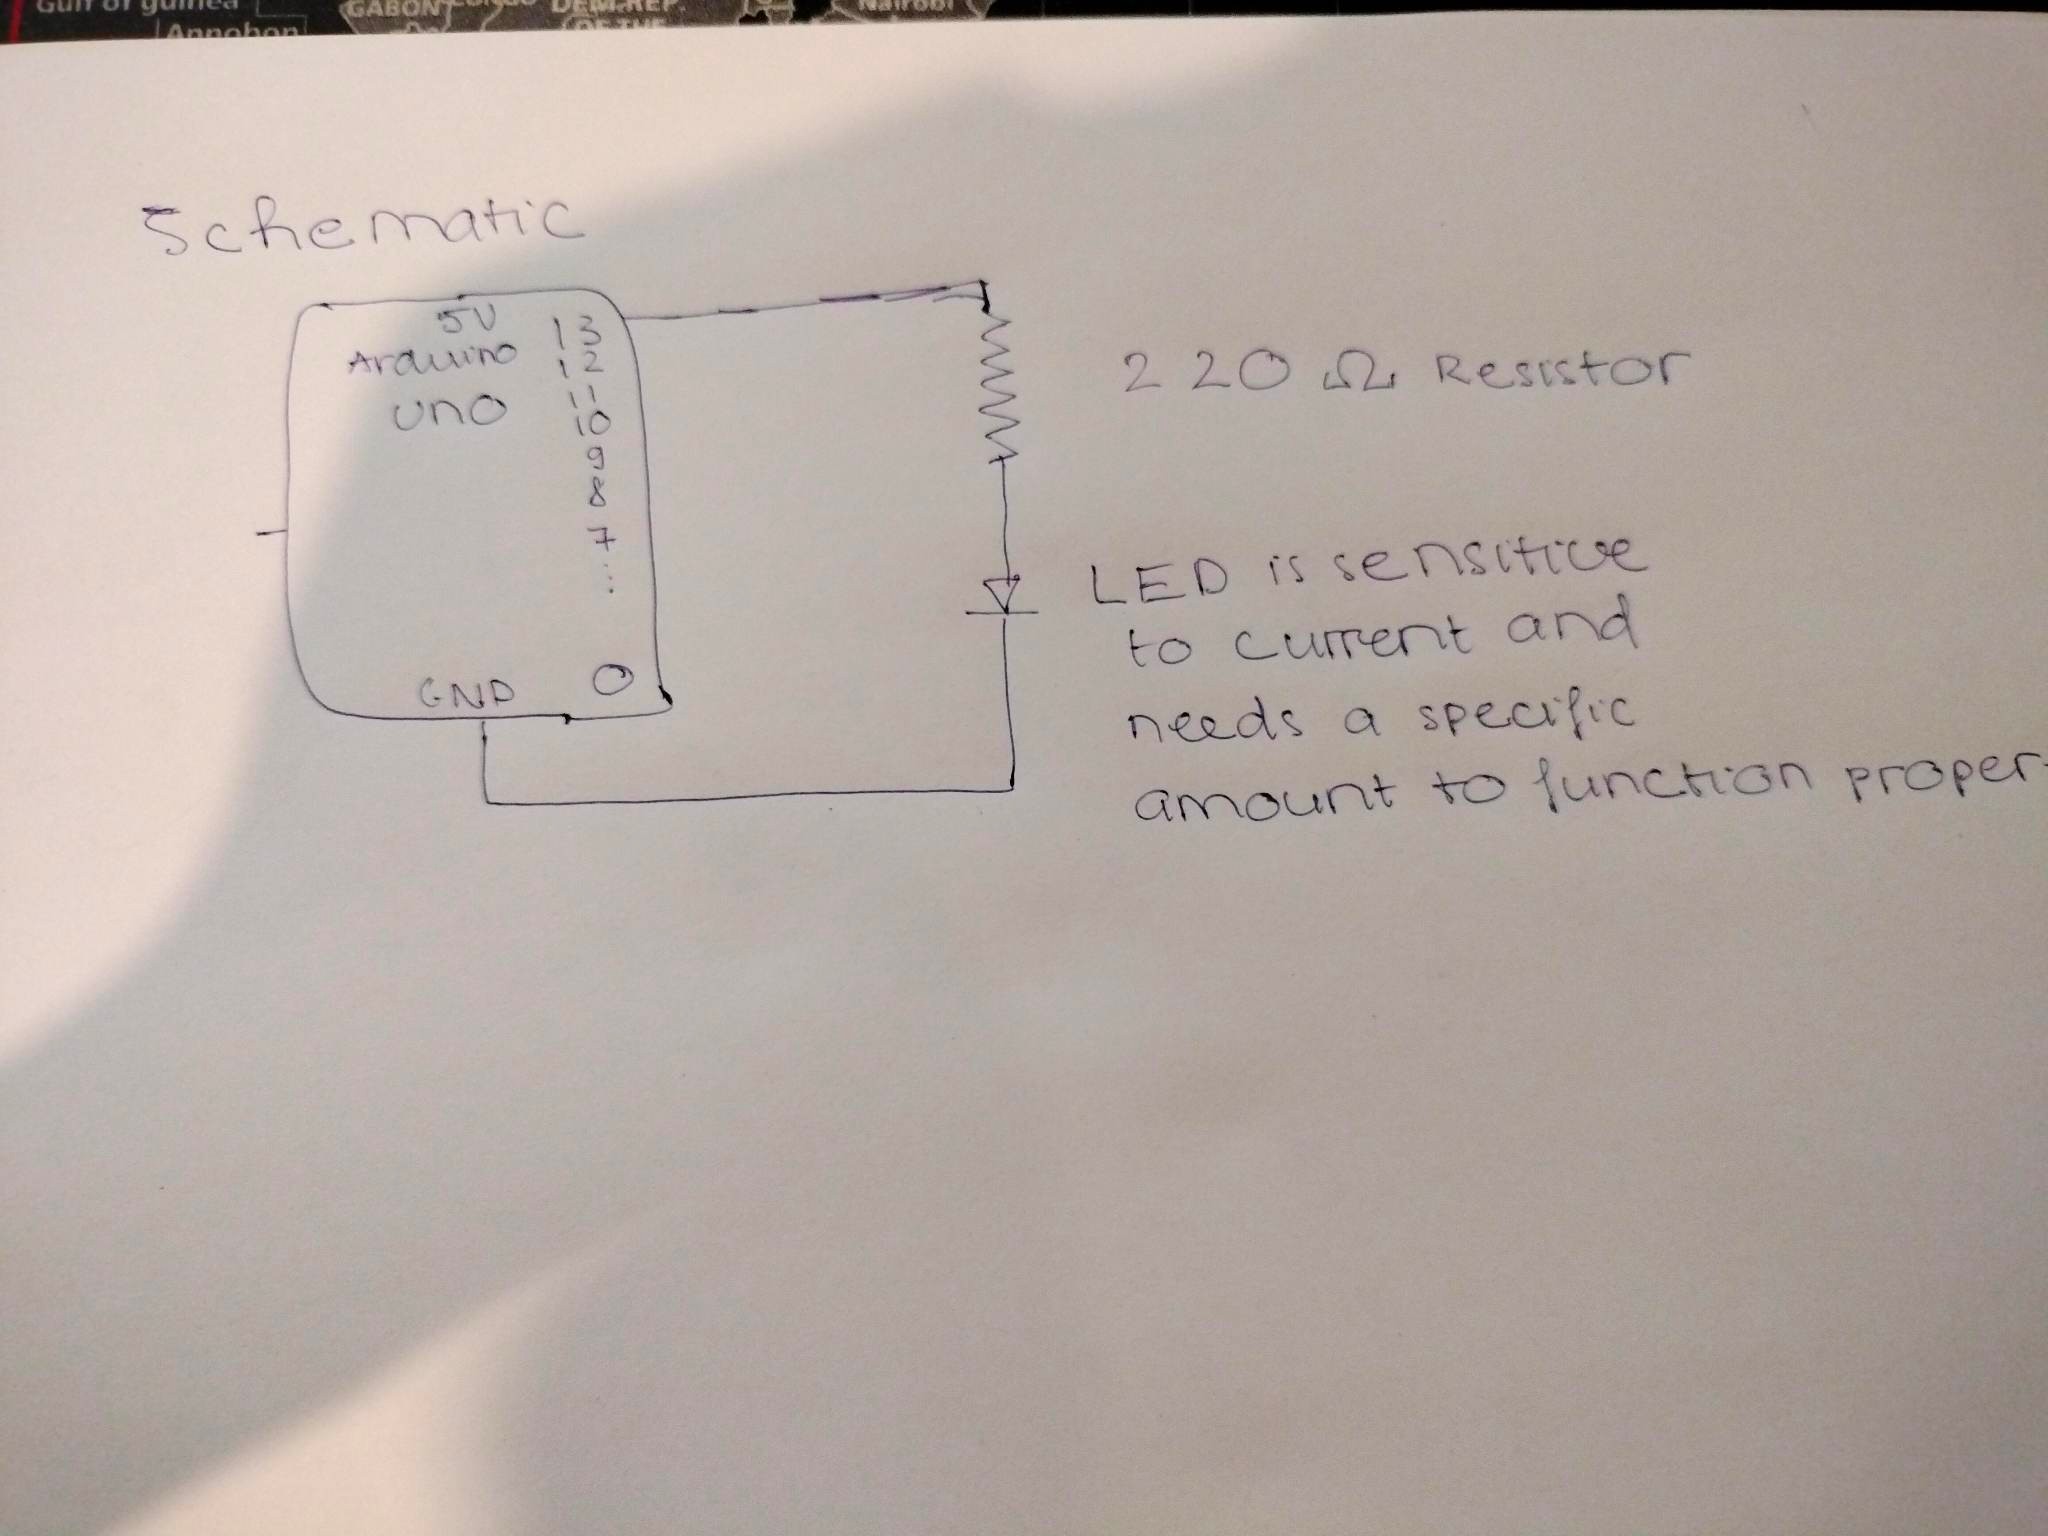 Gulf of guinea
GABON
DEM.REP.
OF THE
Nairobi
Annobon
Schematic
5V
13
Arduino
12
uno
11
10
9
8
7
...
GND
0
220 Ω Resistor
LED is sensitive
to current and
needs a specific
amount to function proper